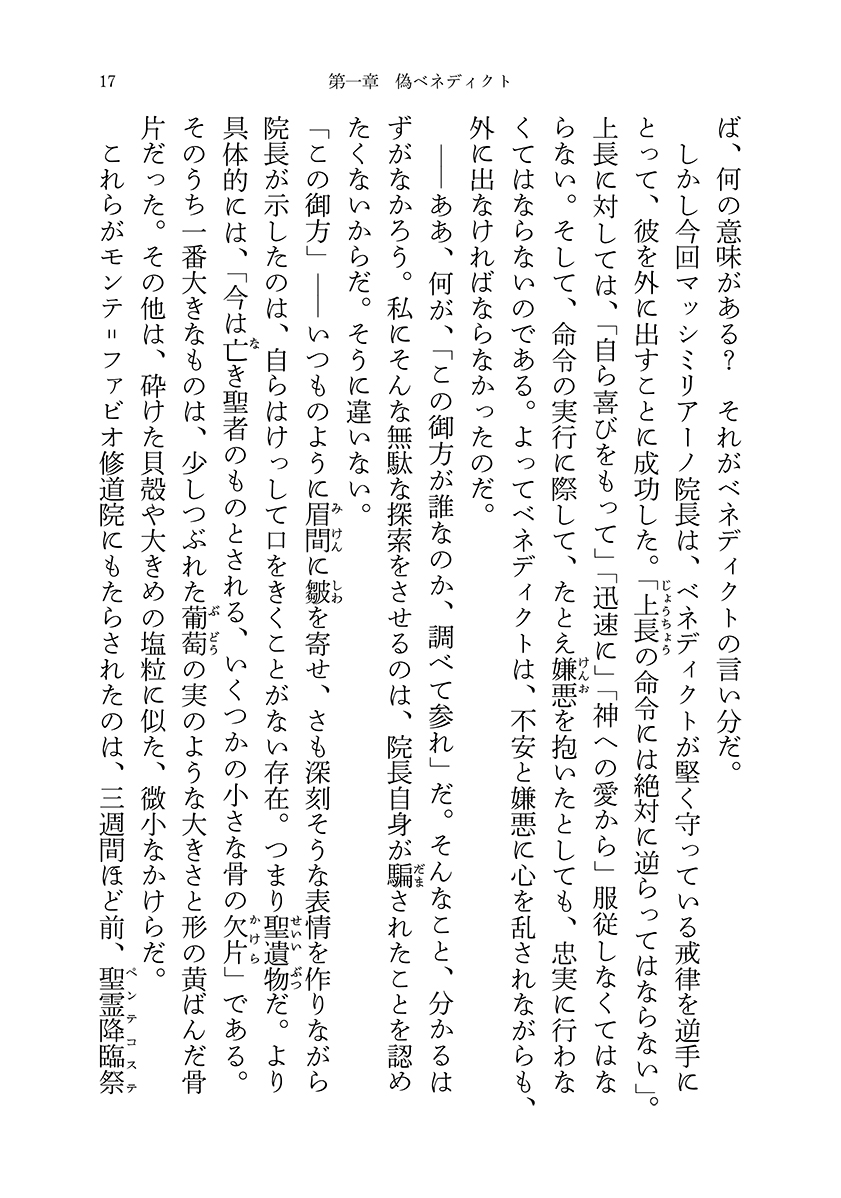 17
第一章　偽ベネディクト
ば、何の意味がある？　それがベネディクトの言い分だ。
　しかし今回マッシミリアーノ院長は、ベネディクトが堅く守っている戒律を逆手に
とって、彼を外に出すことに成功した。「上長の命令には絶対に逆らってはならない」。
じょうちょう
上長に対しては、「自ら喜びをもって」「迅速に」「神への愛から」服従しなくてはな
らない。そして、命令の実行に際して、たとえ嫌悪を抱いたとしても、忠実に行わな
けんお
くてはならないのである。よってベネディクトは、不安と嫌悪に心を乱されながらも、
外に出なければならなかったのだ。
　――ああ、何が、「この御方が誰なのか、調べて参れ」だ。そんなこと、分かるは
ずがなかろう。私にそんな無駄な探索をさせるのは、院長自身が騙されたことを認め
だま
たくないからだ。そうに違いない。
「この御方」――いつものように眉間に皺を寄せ、さも深刻そうな表情を作りながら
みけん
しわ
院長が示したのは、自らはけっして口をきくことがない存在。つまり聖遺物だ。より
せいいぶつ
具体的には、「今は亡き聖者のものとされる、いくつかの小さな骨の欠片」である。
な
かけら
そのうち一番大きなものは、少しつぶれた葡萄の実のような大きさと形の黄ばんだ骨
ぶどう
片だった。その他は、砕けた貝殻や大きめの塩粒に似た、微小なかけらだ。
　これらがモンテ＝ファビオ修道院にもたらされたのは、三週間ほど前、聖霊降臨祭
ペンテコステ